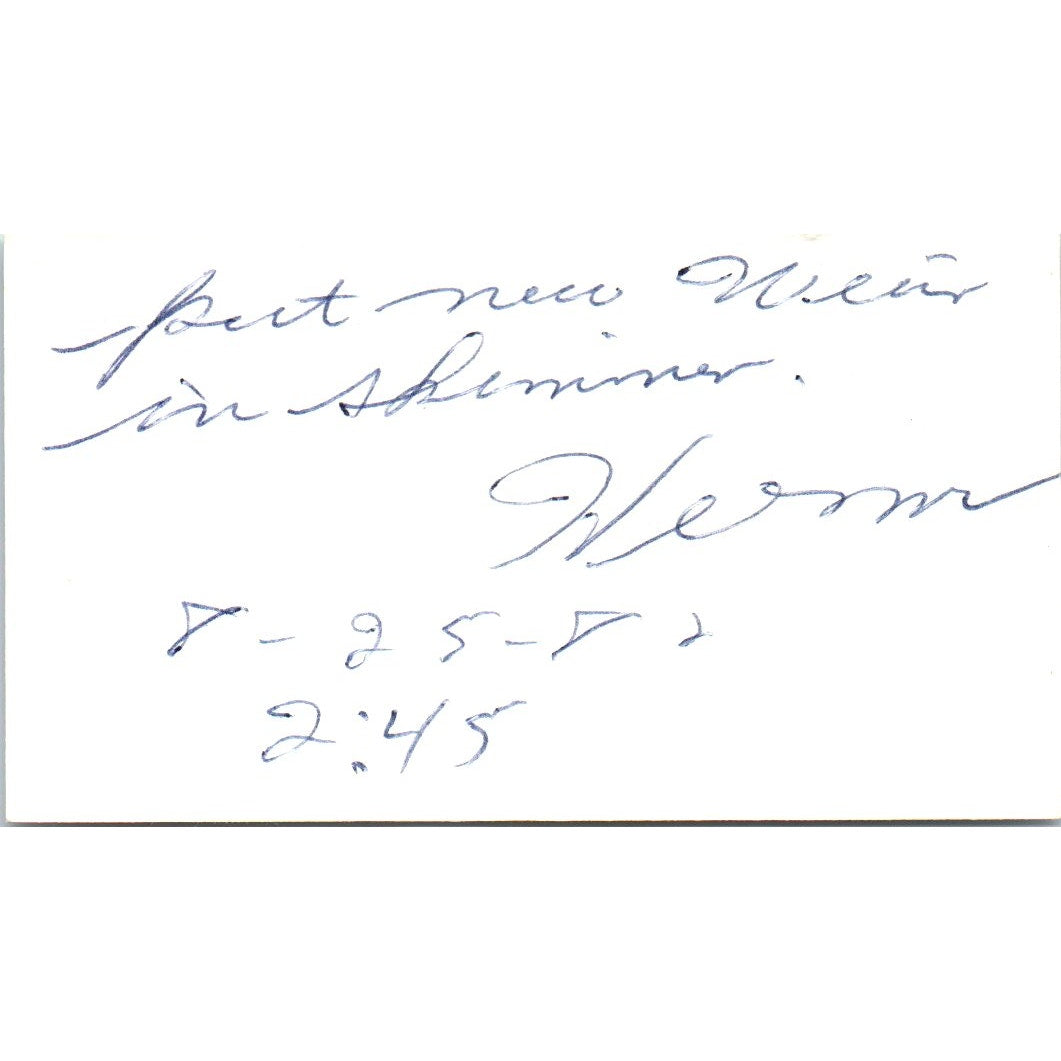 put new Weir
in skimmer.
8-25-82
2:45